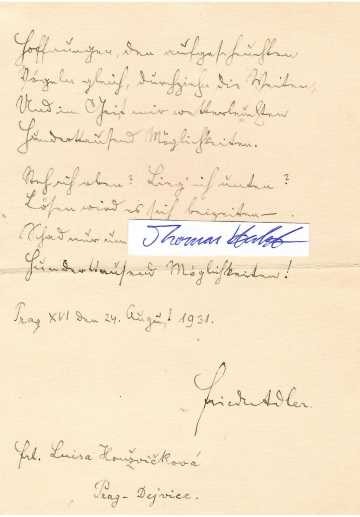 Hoffnungen, den aufgescheuchten
Vögeln gleich, durchziehn die Weiten,
Und im Geist mir wetterleuchten
Hunderttausend Möglichkeiten.
Steh ich oben? Lieg' ich unten?
Lösen wird es sich beizeiten –
Schad nur um
Thomas
Hunderttausend Möglichkeiten!
Prag XVI den 24. August 1931.
Friedr. Adler.
Frl. Luisa Houžvičková
Prag-Dejvice.